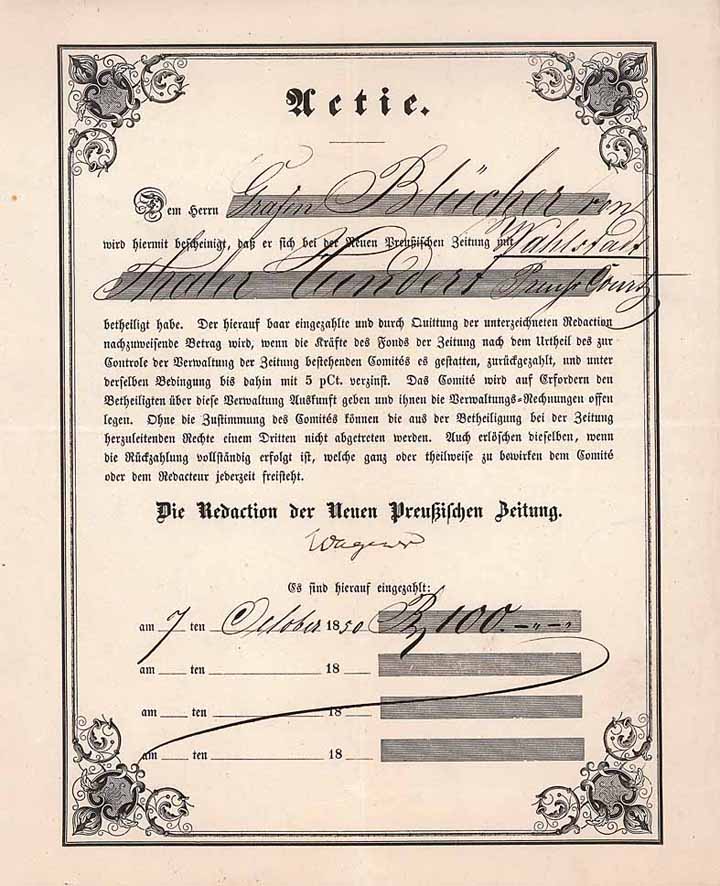 Actie.
Dem Herrn Grafen Blücher von
wird hiermit bescheinigt, daß er sich bei der Neuen Preußischen Zeitung mit Wahlstadt
Thaler Hundert Preuß Cour
betheiligt habe. Der hierauf baar eingezahlte und durch Quittung der unterzeichneten Redaction
nachzuweisende Betrag wird, wenn die Kräfte des Fonds der Zeitung nach dem Urtheil des zur
Controle der Verwaltung der Zeitung bestehenden Comités es gestatten, zurückgezahlt, und unter
derselben Bedingung bis dahin mit 5 pCt. verzinst. Das Comité wird auf Erfordern den
Betheiligten über diese Verwaltung Auskunft geben und ihnen die Verwaltungs-Rechnungen offen
legen. Ohne die Zustimmung des Comités können die aus der Betheiligung bei der Zeitung
herzuleitenden Rechte einem Dritten nicht abgetreten werden. Auch erlöschen dieselben, wenn
die Rückzahlung vollständig erfolgt ist, welche ganz oder theilweise zu bewirken dem Comité
oder dem Redacteur jederzeit freisteht.
Die Redaction der Neuen Preußischen Zeitung.
Wagener
Es sind hierauf eingezahlt:
am 7 ten October 1850 100.
am ten 18
am ten 18
am ten 18